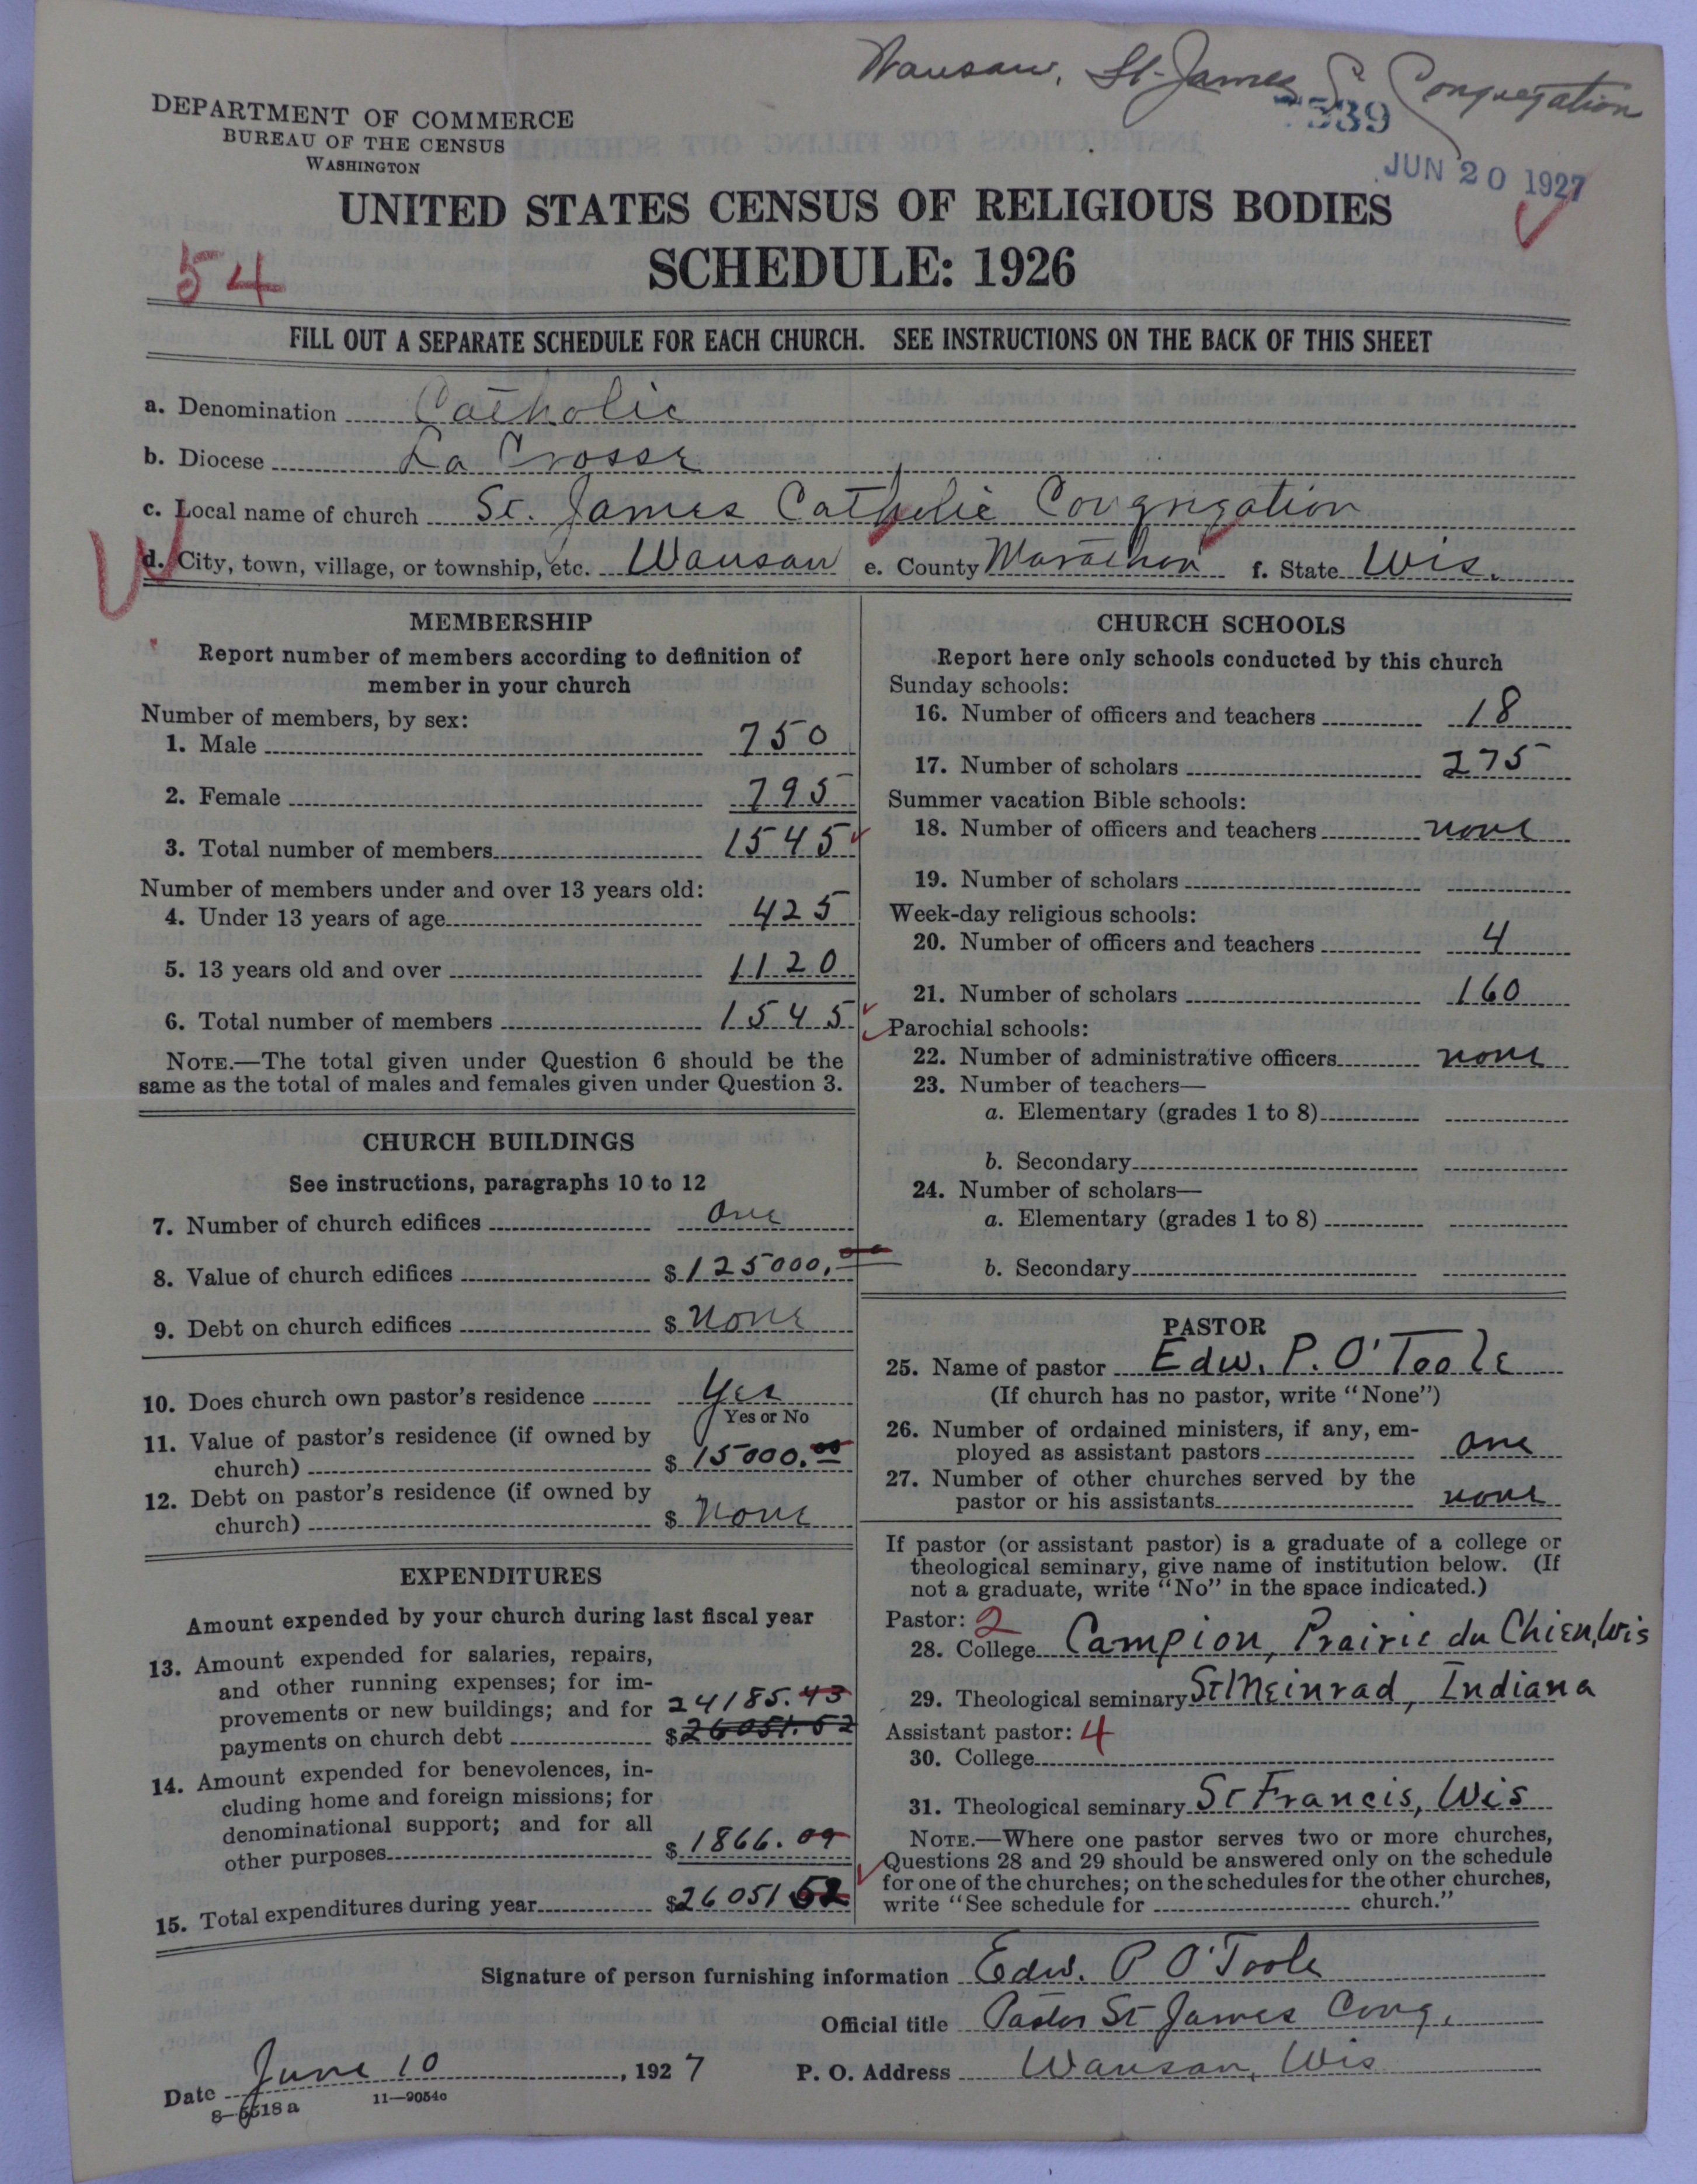 Wausau, St. James C Congregation
DEPARTMENT OF COMMERCE
BUREAU OF THE CENSUS
WASHINGTON
JUN 20 1927
UNITED STATES CENSUS OF RELIGIOUS BODIES
SCHEDULE: 1926
54
FILL OUT A SEPARATE SCHEDULE FOR EACH CHURCH. SEE INSTRUCTIONS ON THE BACK OF THIS SHEET
a. Denomination Catholic
b. Diocese La Crosse
c. Local name of church St. James Catholic Congregation
W
d. City, town, village, or township, etc. Wausau e. County Marathon f. State Wis.
MEMBERSHIP
Report number of members according to definition of
member in your church
Number of members, by sex:
1. Male 750
2. Female 795
3. Total number of members 1545
Number of members under and over 13 years old:
4. Under 13 years of age 425
5. 13 years old and over 1120
6. Total number of members 1545
NOTE.—The total given under Question 6 should be the
same as the total of males and females given under Question 3.
CHURCH BUILDINGS
See instructions, paragraphs 10 to 12
7. Number of church edifices one
8. Value of church edifices $125000.00
9. Debt on church edifices $ None
10. Does church own pastor's residence Yes
Yes or No
11. Value of pastor's residence (if owned by
church) $ 15000.00
12. Debt on pastor's residence (if owned by
church) $ None
EXPENDITURES
Amount expended by your church during last fiscal year
13. Amount expended for salaries, repairs,
and other running expenses; for im-
provements or new buildings; and for 24185.43
payments on church debt $26051.52
14. Amount expended for benevolences, in-
cluding home and foreign missions; for
denominational support; and for all
other purposes $1866.09
15. Total expenditures during year $26051 52
CHURCH SCHOOLS
Report here only schools conducted by this church
Sunday schools:
16. Number of officers and teachers 18
17. Number of scholars 275
Summer vacation Bible schools:
18. Number of officers and teachers none
19. Number of scholars
Week-day religious schools:
20. Number of officers and teachers 4
21. Number of scholars 160
Parochial schools:
22. Number of administrative officers none
23. Number of teachers—
a. Elementary (grades 1 to 8)
b. Secondary
24. Number of scholars—
a. Elementary (grades 1 to 8)
b. Secondary
PASTOR
25. Name of pastor Edw. P. O'Toole
(If church has no pastor, write "None")
26. Number of ordained ministers, if any, em-
ployed as assistant pastors one
27. Number of other churches served by the
pastor or his assistants none
If pastor (or assistant pastor) is a graduate of a college or
theological seminary, give name of institution below. (If
not a graduate, write "No" in the space indicated.)
Pastor: 2
28. College Campion, Prairie du Chien, Wis
29. Theological seminary St Meinrad, Indiana
Assistant pastor: 4
30. College
31. Theological seminary St Francis, Wis
NOTE.—Where one pastor serves two or more churches,
Questions 28 and 29 should be answered only on the schedule
for one of the churches; on the schedules for the other churches,
write "See schedule for church."
Signature of person furnishing information Edw. P O'Toole
Official title Pastor St James Cong.
Date June 10, 1927 P. O. Address Wausau, Wis
8—5518 a 11—9054c